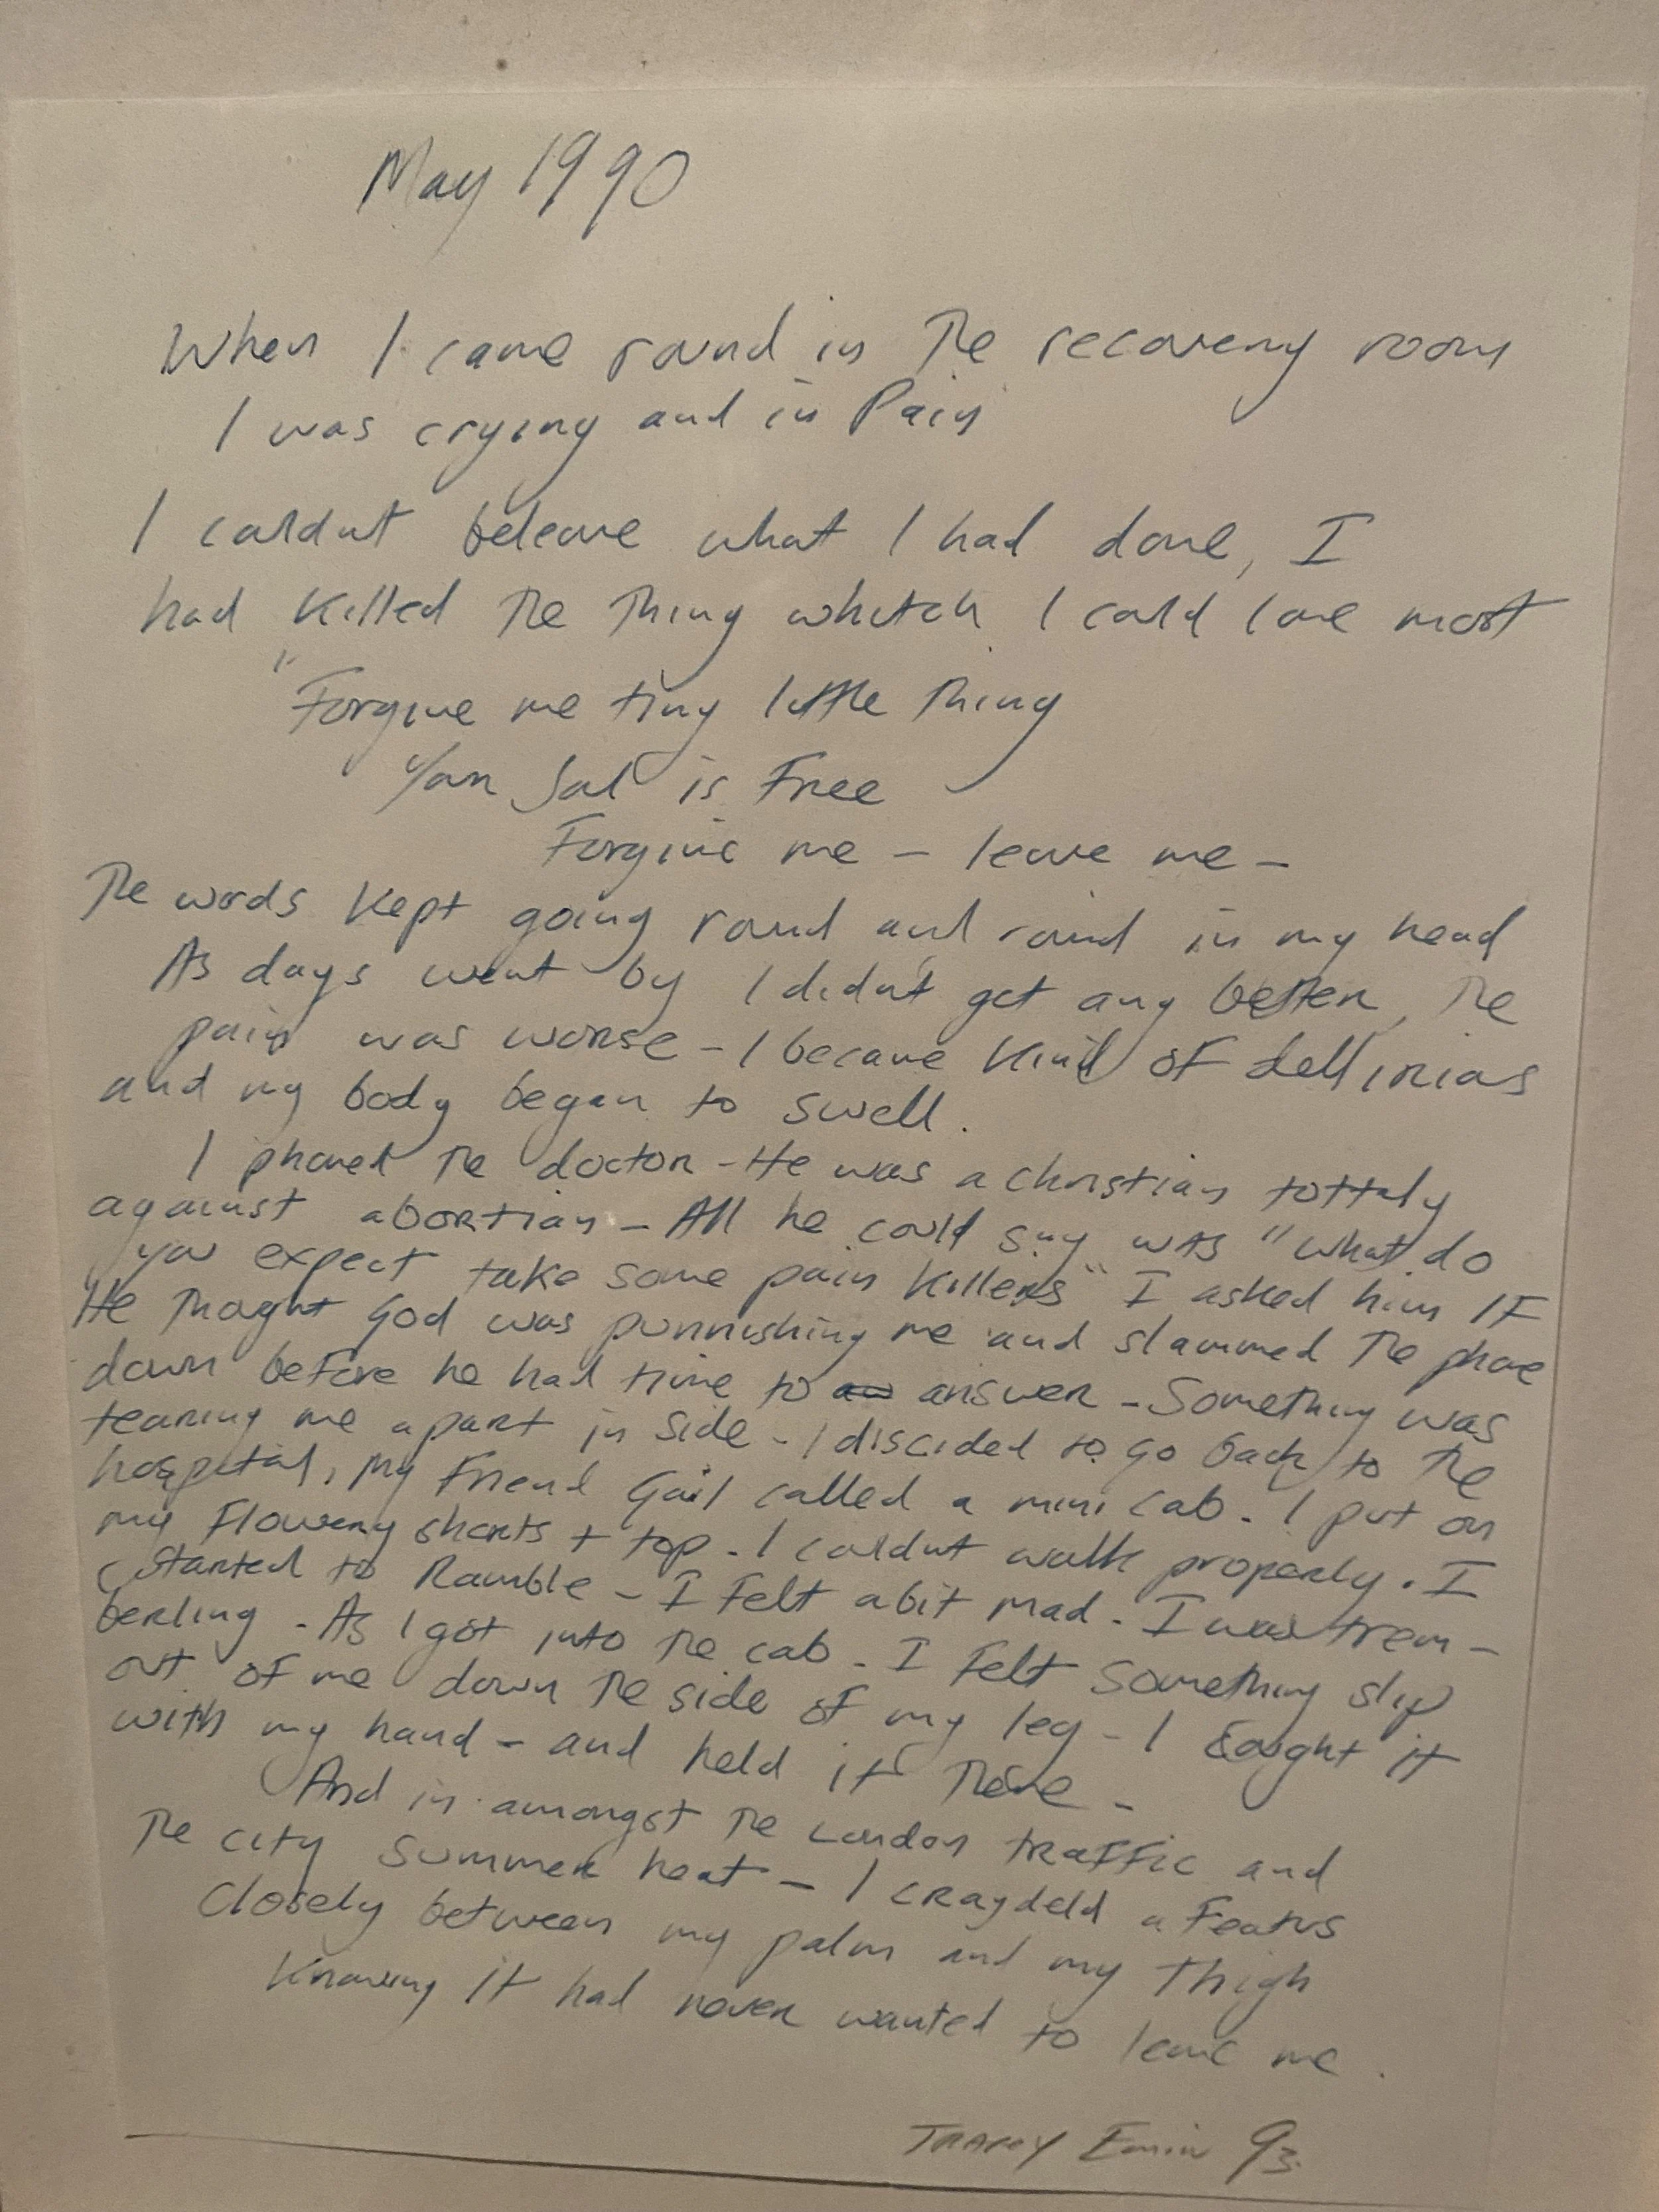 May 1990
When I came round in The recovery room
I was crying and in Pain
I couldnt beleave what I had done, I
had Killed The Thing whitch I could love most
"Forgive me tiny little Thing
Your Soul is Free
Forgive me – leave me –
The words kept going round and round in my head
As days went by I didn't get any better, The
pain was worse – I became Kind of dellirious
and my body began to swell.
I phoned The doctor – He was a christian tottaly
against abortion – All he could say was "what do
you expect take some pain killers" I asked him IF
He Thought God was punnishing me and slammed The phone
down before he had time to answer – Something was
tearing me apart in side – I discided to go back to The
hospital, My Friend Gail called a mini cab. I put on
my Flowery shorts + top – I couldnt walk properly. I
Started to Ramble – I Felt a bit mad – I was trem –
berling – As I got into The cab – I Felt Something slip
out of me down The side of my leg – I caught it
with my hand – and held it There –
And in amongst The London traffic and
The city Summer heat – I craydeld a Featus
Closely between my palm and my Thigh
Knowing it had never wanted to leave me.
Tracey Emin 93.